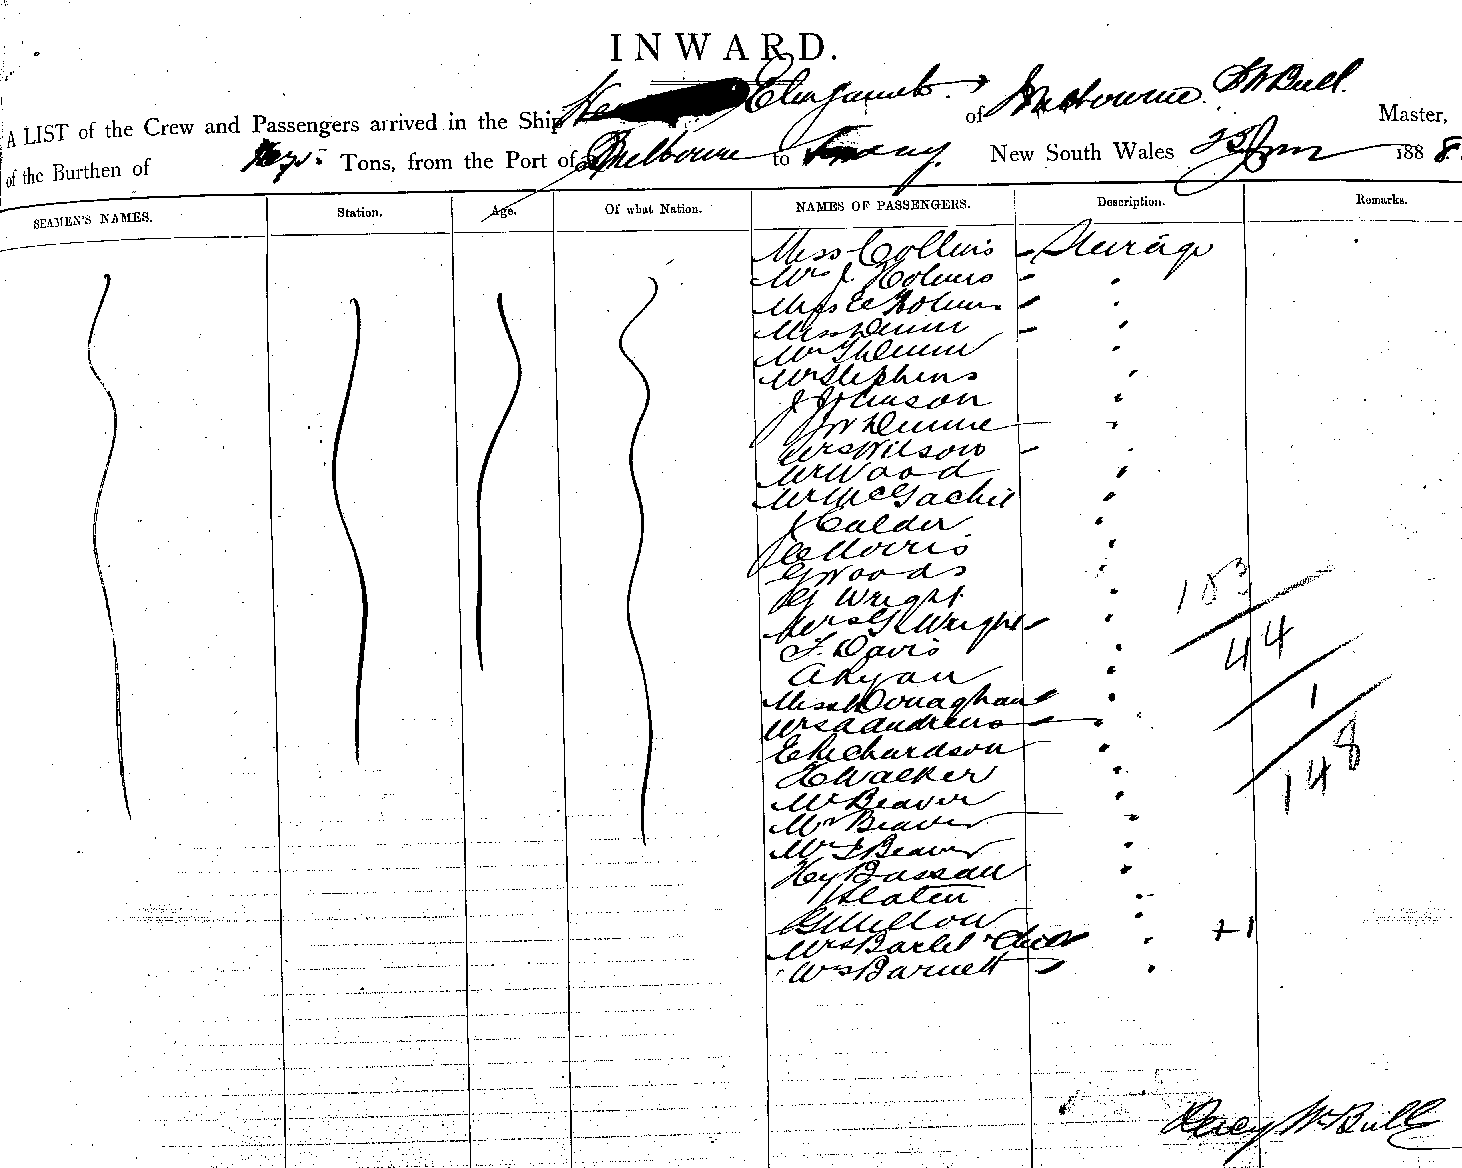 INWARD.
A LIST of the Crew and Passengers arrived in the Ship of Melbourne W Bull Master,
of the Burthen of Tons, from the Port of Melbourne to New South Wales 188 8.
SEAMEN'S NAMES. Station. Age. Of what Nation. NAMES OF PASSENGERS. Description. Remarks.
Miss Collins Steerage
Mr J. Holmes "
E Holmes "
Miss Dunn "
Mr Dunn "
Mr Stephens "
J Johnson "
J W Dunne "
Mrs Wilson "
Mr Wood "
Mr McGachie "
J Calder "
C Morris "
G Woods "
G Wright "
Mrs G Wright "
F. Davis "
A Ryan "
Miss Donaghan "
Mrs A Andrews "
E Richardson "
H Walker "
Mr Beaver "
Mr Beaver "
Mr F Beaver "
Hy Bassau "
Slater "
G Mellow "
Mrs Bartel " +1
Mrs Barnett "
103
44
1
148
Percy W Bull